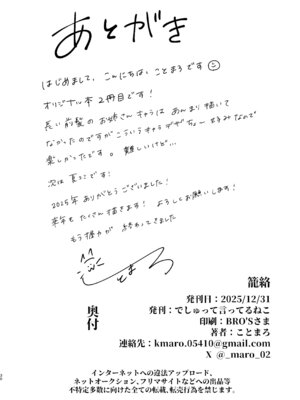 あとがき
はじめまして、こんにちは、ことまろです
オリジナル本2冊目です!
長い前髪のお姉さんキャラはあんまり描いて
なかったのですがこういうキャラデザちょー好みなので
楽しかったです。難しいけど…
次は
2025年ありがとうございました!
来年もたくさん描きます! よろしくお願いします!
もう握力が終わってきました
ことまろ
籠絡
奥付
発刊日:2025/12/31
発刊:でしゅって言ってるねこ
印刷:BRO'Sさま
著者:ことまろ
連絡先:kmaro.05410@gmail.com
X @_maro_02
インターネットへの違法アップロード、
ネットオークション、フリマサイトなどへの出品等
不特定多数に向けた全ての転載、転売行為を禁じます。